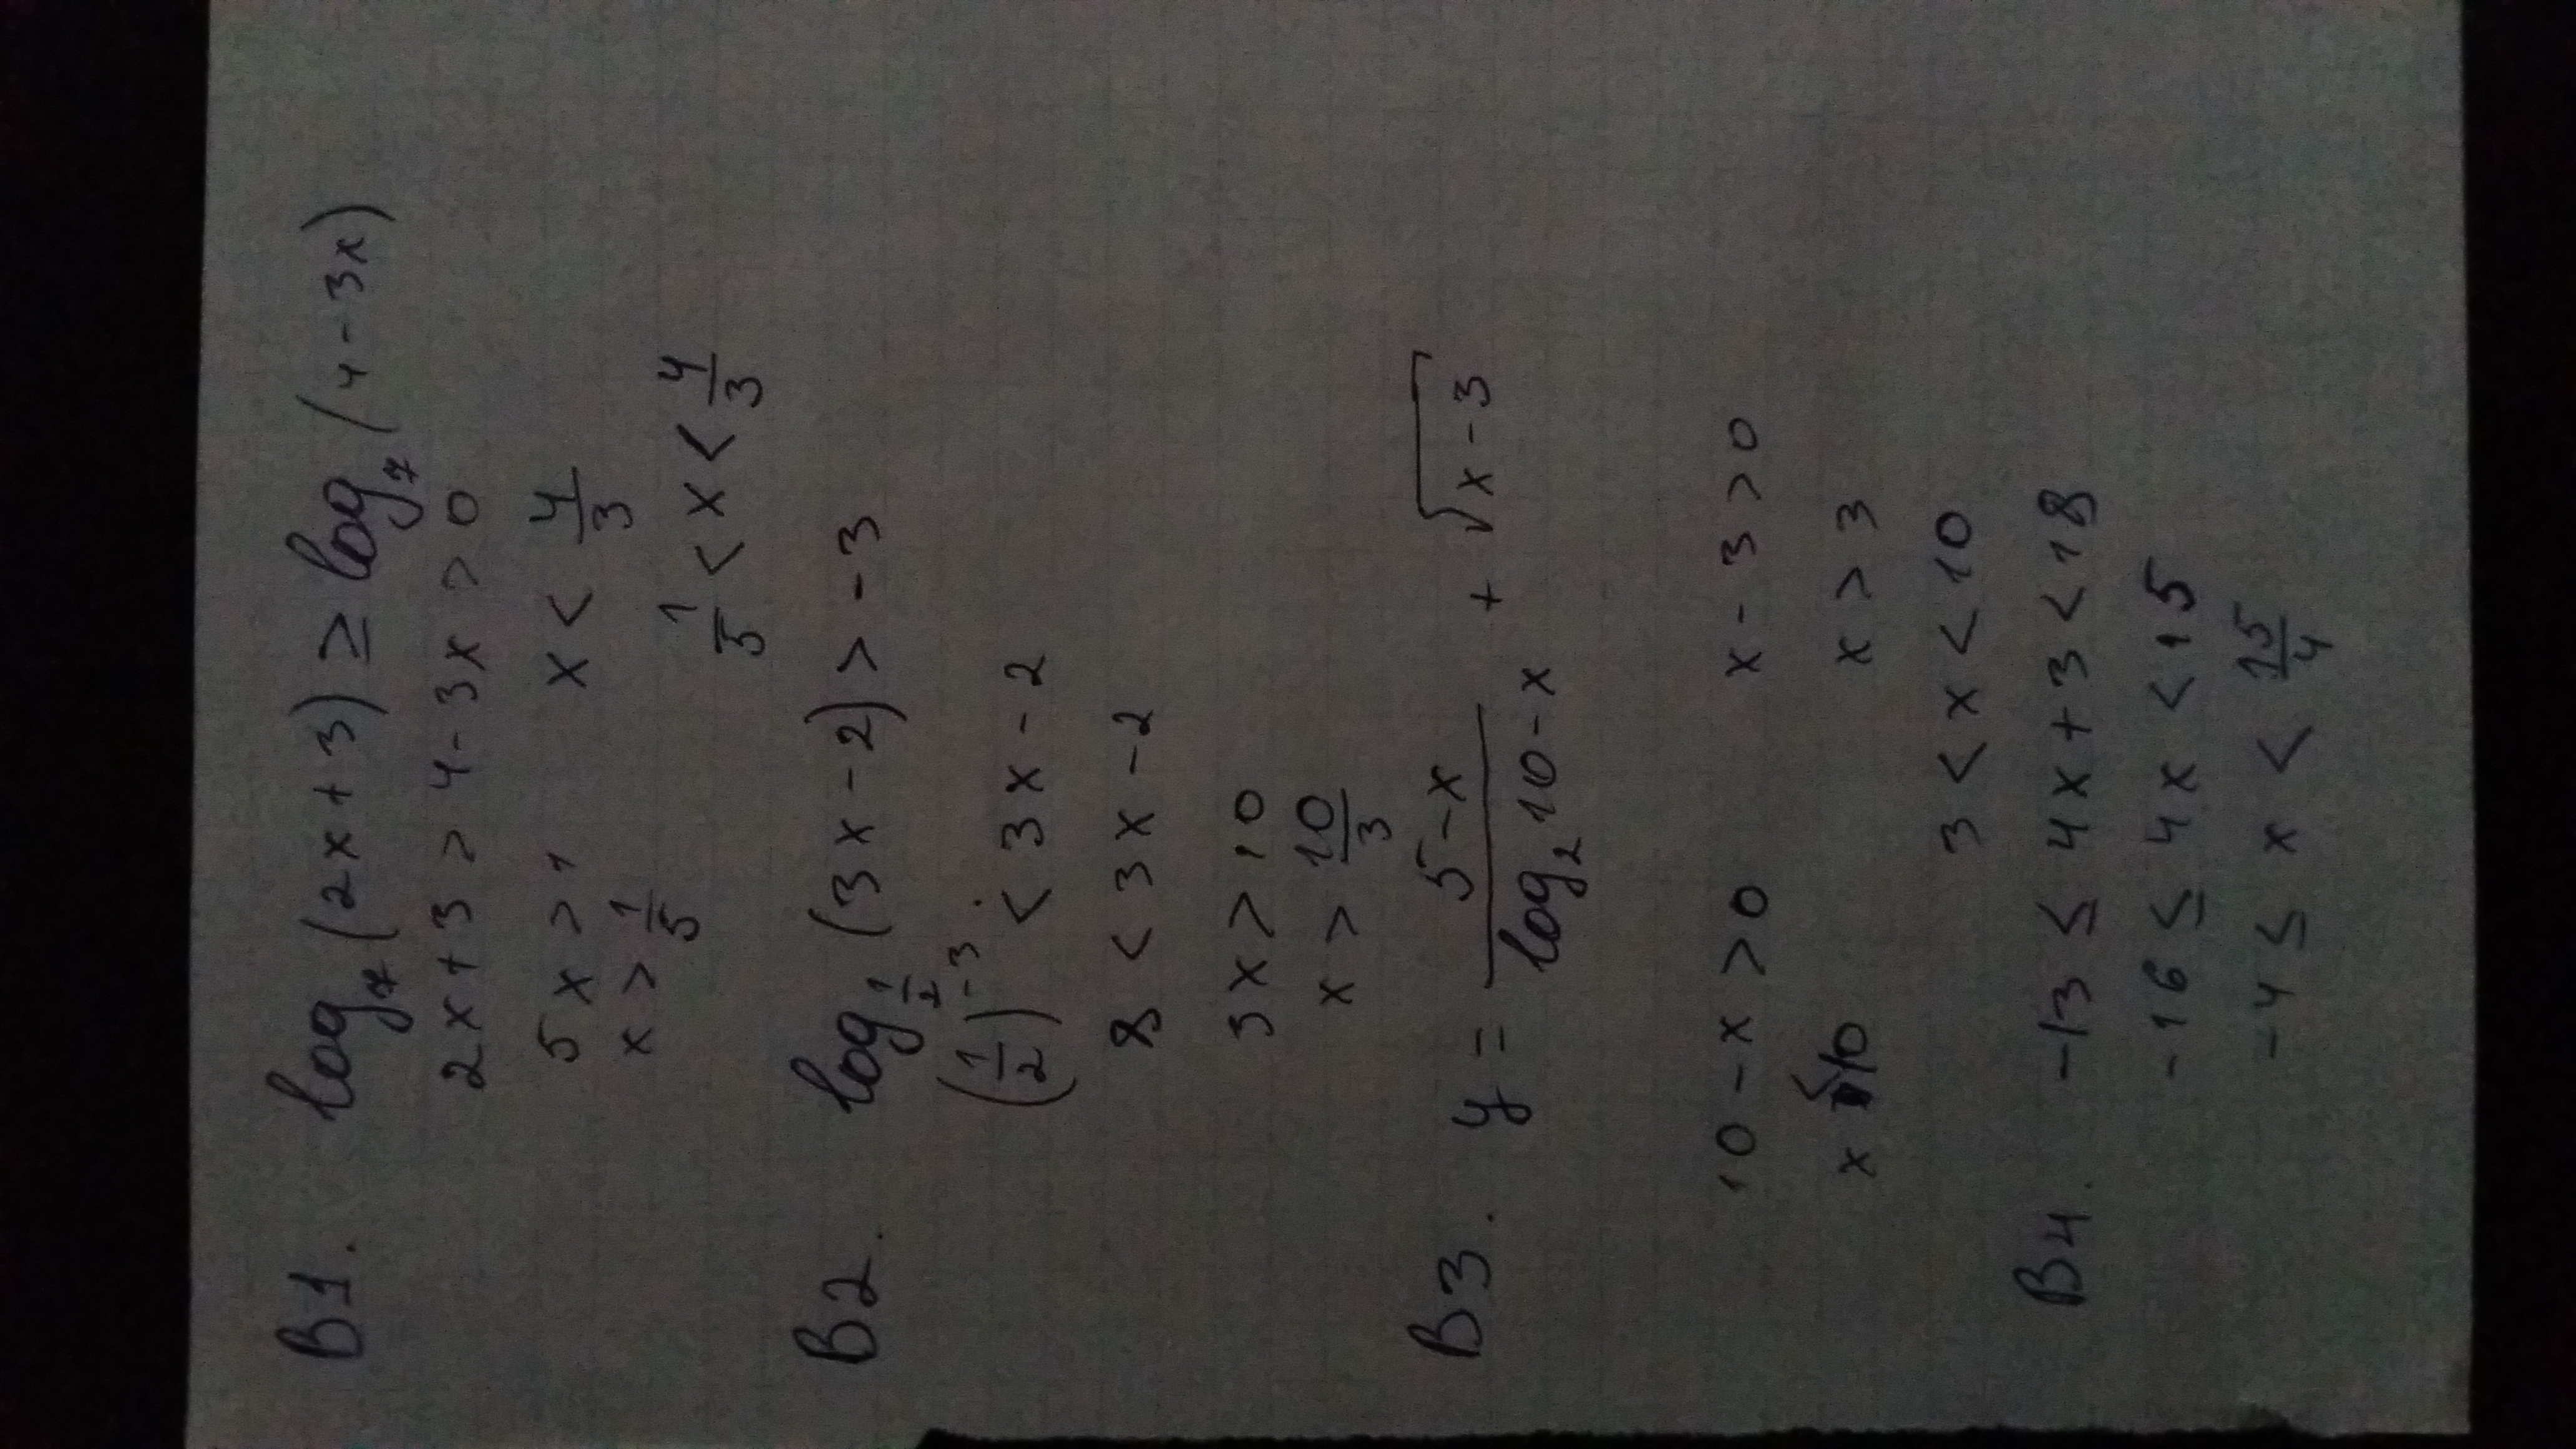 В1. log₇(2x+3) ≥ log₇(4-3x)
2x+3 > 4-3x > 0
5x > 1 x < 4/3
x > 1/5
1/5 < x < 4/3
В2. log_{1/2}(3x-2) > -3
(1/2)^{-3} < 3x-2
8 < 3x-2
3x > 10
x > 10/3
В3. y = (5-x)/(log₂10-x) + √(x-3)
10-x > 0 x-3 > 0
x < 10 x > 3
3 < x < 10
В4. -13 ≤ 4x+3 < 18
-16 ≤ 4x < 15
-4 ≤ x < 15/4